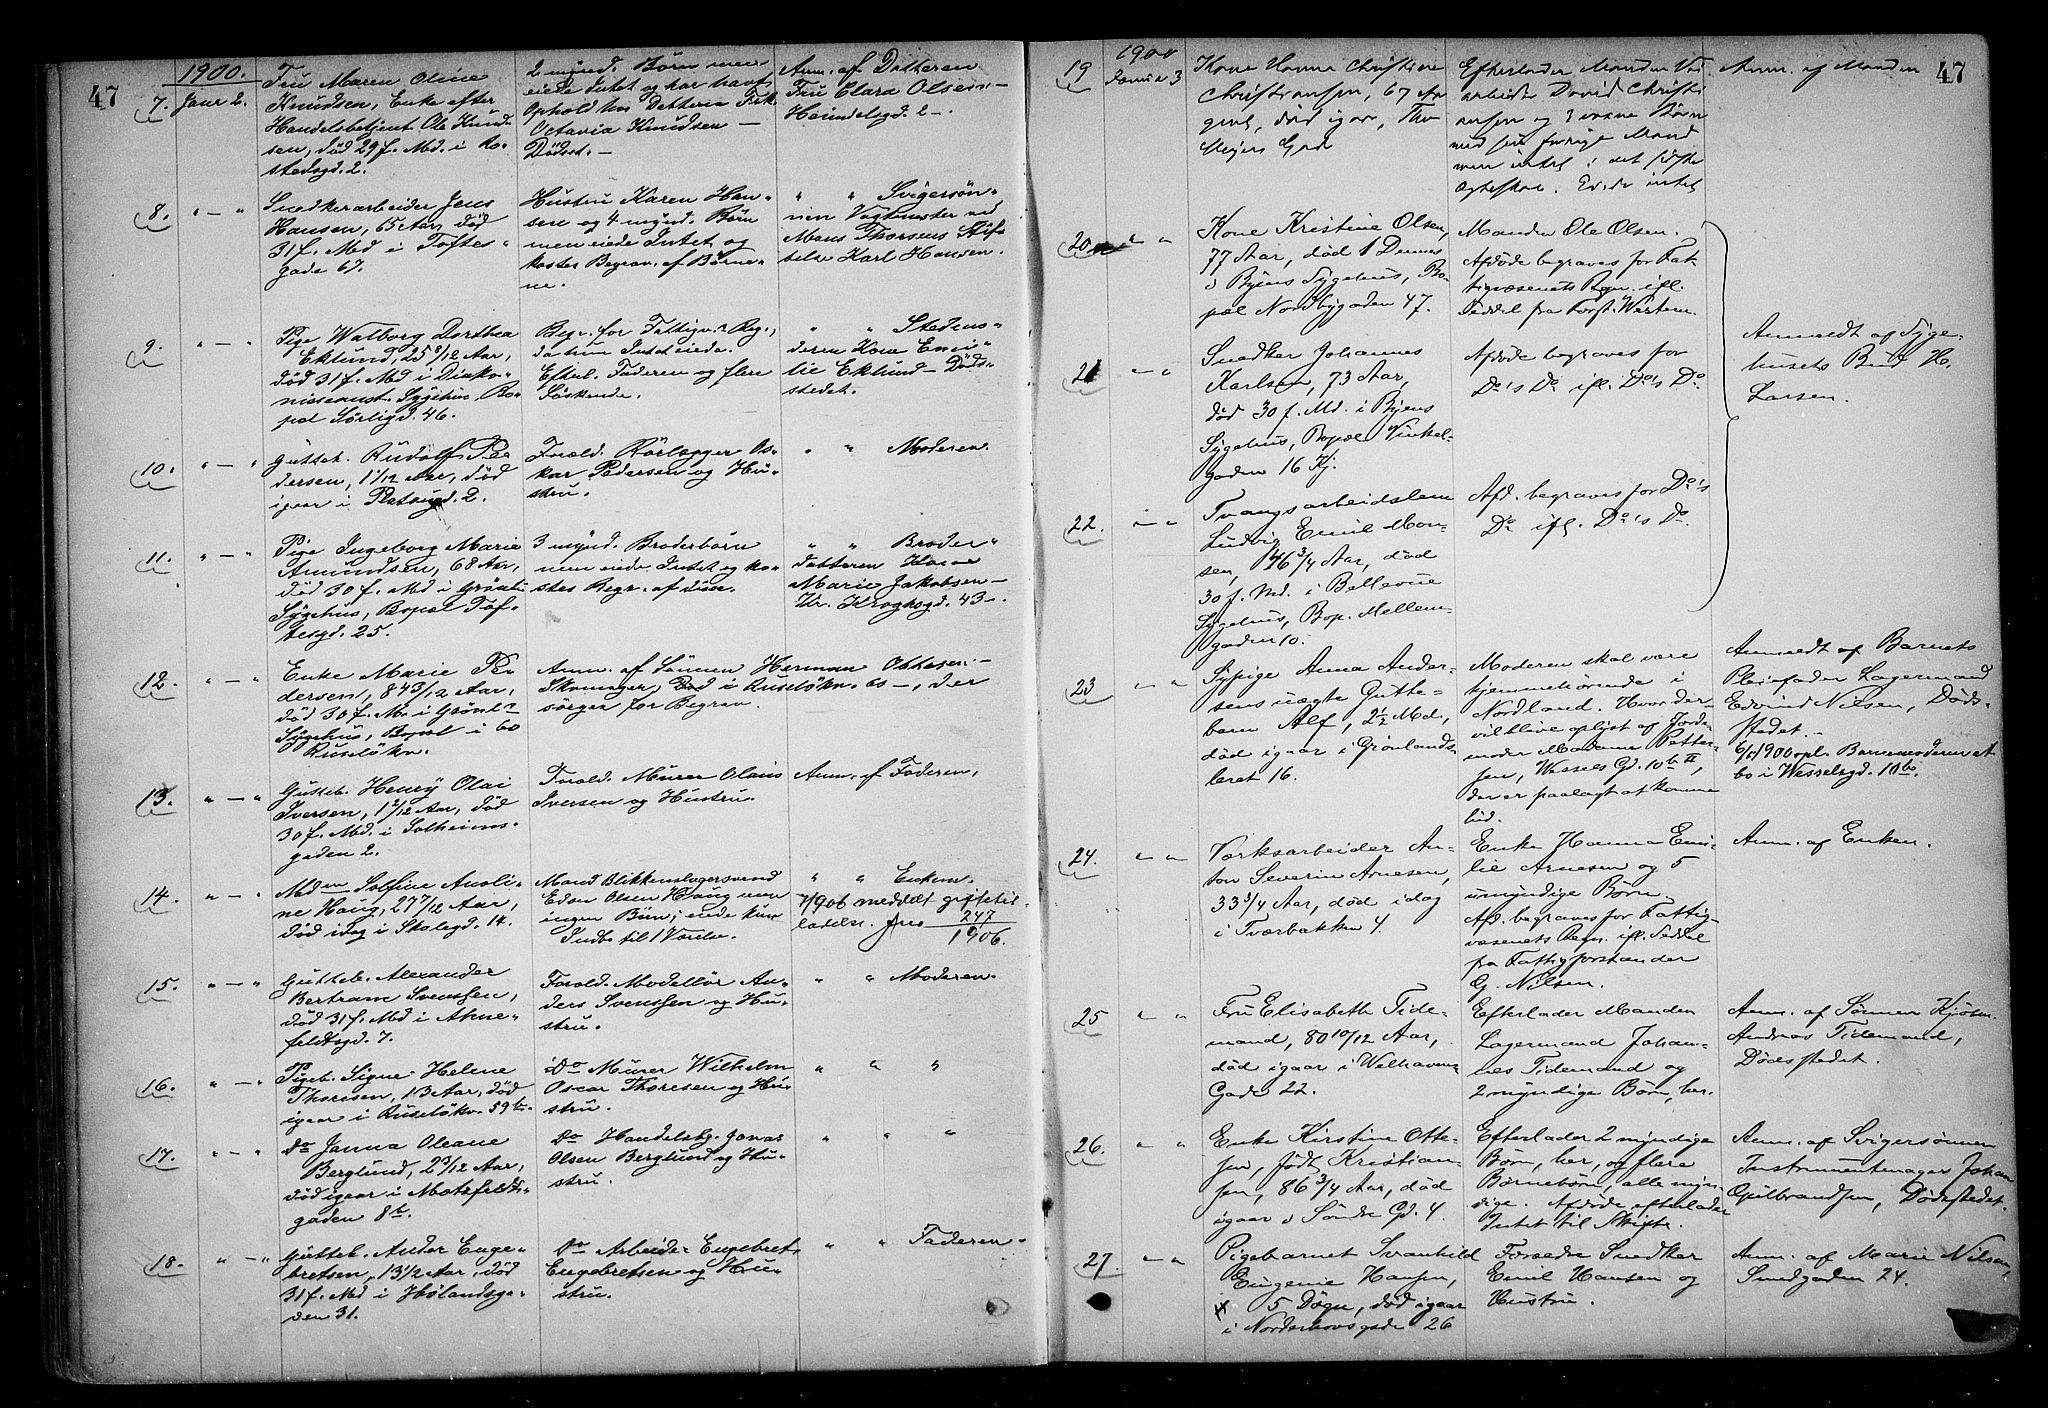 47
1900.
7. Januar 2.
Fru Maren Oline
Knudsen, Enke efter
Handelsbetjent Ole Knud-
sen, död 29 f. Md. i Ro-
stedsgd. 2.
2 mynd. Börn men
eiede Intet og har havt
Ophold hos Datteren Frk.
Octavia Knudsen —
Dödsst. —
Anm. af Datteren
Fru Clara Olsen —
Heimdalsgd. 2 —.
8. " — "
Snedkerarbeider Jens
Hansen, 65 Aar, död
31 f. Md i Toftes-
gade 67.
Hustru Karen Han-
sen og 4 mynd. Börn
men eiede Intet og
kostes Begrav. af Börne-
ne.
" " Svigersön-
nen Vagtmester ved
Mans Thorsens Stif-
telse Karl Hansen.
9. " — "
Pige Walborg Dorthea
Eklund, 25 8/12 Aar,
död 31 f. Md i Diako-
nisseanst. Sygehus, Bo-
pæl Sörligd. 46.
Begr. for Fattigv.s Reg.,
da hun Intet eiede.
Efterl. Faderen og flere
Söskende.
" " Stedmo-
deren Kone Emi-
lie Eklund — Död-
stedet.
10. " — "
Gutteb. Rudolf Pe-
dersen, 1/12 Aar, död
igaar i Platougd. 2.
Foræld. Rörlægger Os-
kar Pedersen og Hu-
stru.
" " Moderen.
11. " — "
Pige Ingeborg Marie
Amundsen, 68 Aar,
död 30 f. Md i Grönl.s
Sygehus, Bopæl Tof-
tesgd. 25.
3 mynd. Broderbörn
men eiede Intet og ko-
stes Begr. af disse.
" " Broder-
datteren Kone
Marie Jakobsen —
Kr. Kroghsgd. 43 —.
12. " — "
Enke Marie Pe-
dersen, 84 3/12 Aar,
död 30 f. M. i Grönl.s
Sygehus, Bopæl i 60
Ruselökv.
Anm. af Sönnen Herman Ottesen —
Skomager, i Ruselökv. 60 —, der
sörger for Begrav.
13. " — "
Gutteb. Henry Olai
Iversen, 1 2/12 Aar, död
30 f. Md. i Solheims-
gaden 2.
Foræld. Murer Olaus
Iversen og Hustru.
Anm. af Faderen.
14. " — "
Mdm Solfine Anoli-
ne Haug, 27 7/12 Aar,
död idag i Skolegd. 14.
Mand Blikkenslagersvend
Edon Olsen Haug men
ingen Börn; eiede kun
Indbo til 1 Værelse.
" " Enkem.
1906 meddelt giftetil-
ladelse. Jno 247/1906.
15. " — "
Gutteb. Alexander
Bertram Svenssen,
död 31 f. Md i Ahne-
feldtsgd. 7.
Foræld. Modellör An-
ders Svenssen og Hu-
stru.
" " Moderen.
16. " — "
Pigeb. Signe Helene
Thoresen, 13 Aar, död
igaar i Ruselökv. 59 b.
Do Murer Wilhelm
Oscar Thoresen og Hu-
stru.
" " "
17. " — "
Do Janna Oleane
Berglund, 2 3/12 Aar,
död igaar i Motzfeldts-
gaden 8 b.
Do Handelsbg. Jonas
Olsen Berglund og Hu-
stru.
" " "
18. " — "
Gutteb. Ander Enge-
bretsen, 1 3/12 Aar, död
31 f. Md i Hølandsga-
den 31.
Do Arbeider Engebret
Engebretsen og Hu-
stru.
" " Faderen.
47
1900
19 Januar 3
Kone Hanna Christine
Christiansen, 67 Aar
død igaar, Thv
Meyers Gade
Efterlader Manden
arbeider David Christi
ansen og 3 voxne Børn
med sin forrige Mand
men intet i det sidste
Ægteskab. Eiede intet
Anm. af Manden
20 " "
Kone Kristine Olsen,
77 Aar, død 1 Dennes
i Byens Sygehus, Bo-
pæl Nordbygaden 47.
Manden Ole Olsen.
Afdøde begraves for Fat-
tigvæsenets Regn. ifl.
Seddel fra Forst. Western.
21 " "
Snedker Johannes
Karlsen, 73 Aar,
død 30 f. Md. i Byens
Sygehus, Bopæl Vinkel-
gaden 16 Kj.
Afdøde begraves for
Do's Do ifl. Do's Do.
Anmeldt af Syge-
husets Bud H.
Larsen.
22. " "
Tvangsarbeidslem
Ludvig Emil Mon-
sen, 46 3/4 Aar, død
30 f. Md. i Bellevue
Sygehus, Bop. Mellem-
gaden 10.
Afd. begraves for Do's
Do ifl. Do's Do.
23 " "
Sypige Anna Ander-
sens uægte Gutte-
barn Alf, 2 1/2 Md.,
død igaar i Grønlands-
leret 16.
Moderen skal være
hjemmehørende i
Nordland. Hvor der-
vil blive oplyst af Jorde-
moder Madame Petter-
sen, Wessels Gd. 10 b II,
der er paalagt at komme
hid.
Anmeldt af Barnets
Pleiefader Lagermand
Edvind Nilsen, Døds-
stedet. —
6/1 1900 opl. Barnemoderen at
bo i Wesselsgd. 10 b.
24. " "
Værksarbeider An-
ton Severin Arnesen,
33 3/4 Aar, død idag
i Tværbakken 4.
Enke Hanna Emi-
lie Arnesen og 5
umyndige Børn.
Afd. begraves for Fattig-
væsenets Regn. ifl. Seddel
fra Fattigforstander
G. Nilsen.
Anm. af Enken.
25 " "
Fru Elisabeth Tide-
mand, 80 10/12 Aar,
død igaar i Welhavens
Gade 22.
Efterlader Manden
Lagermand Johan-
nes Tidemand og
2 myndige Børn, her.
Anm. af Sønnen Kjøbm.
Andreas Tidemand,
Dødsstedet.
26. " "
Enke Kirstine Otte-
sen, født Kristian-
sen, 86 3/4 Aar, død
igaar i Søndre Gd. 4.
Efterlader 2 myndige
Børn, her, og flere
Børnebørn, alle myn-
dige. Afdøde efterlader
Intet til Skifte.
Anm. af Svigersønnen
Instrumentmager Johan
Gulbrandsen, Dødsstedet.
27. " "
Pigebarnet Svanhild
Eugenie Hansen,
5 Døgn, død igaar
i Norderhovsgade 26
Forældre Snedker
Emil Hansen og
Hustru.
Anm. af Marie Nilsen,
Smedgaden 24.